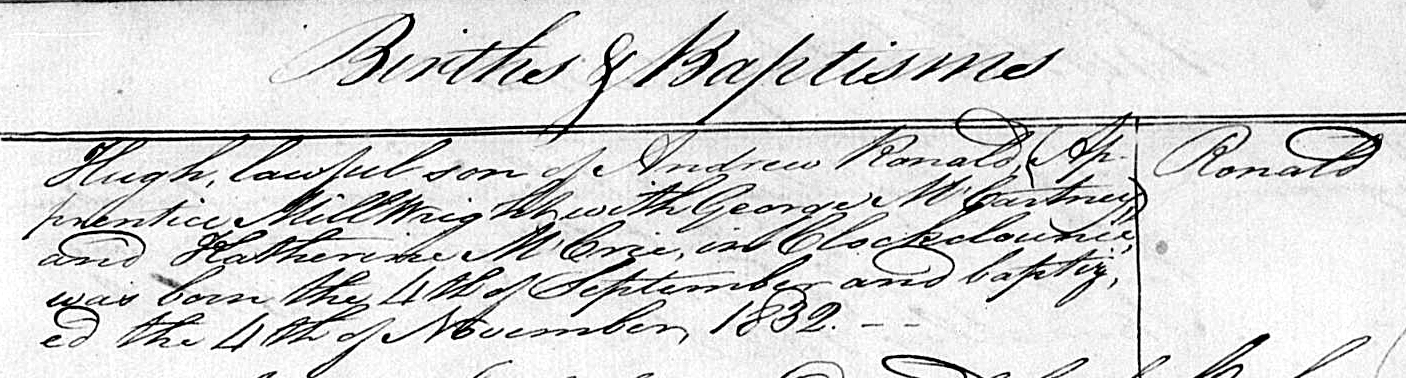 Births & Baptisms
Hugh, lawful son of Andrew Ronald, (Ap- Ronald
prentice Millwright with George McCartney)
and Katherine McCrie, in Clockclownie,
was born the 4th of September and baptiz,
ed the 4th of November, 1832. - -